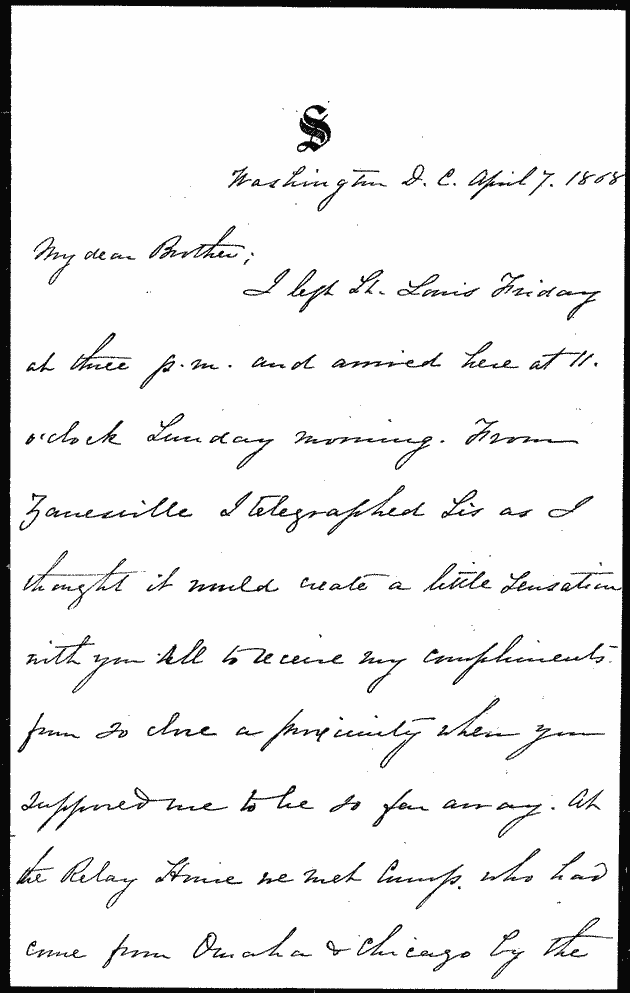 S
Washington D. C. April 7. 1868
My dear Brother;
I left St. Louis Friday
at three p.m. and arrived here at 11.
o'clock Sunday morning. From
Zanesville I telegraphed Lis as I
thought it would create a little sensation
with you all to receive my compliments
from so close a proximity when you
supposed me to be so far away. At
the Relay House we met Cump. who had
come from Omaha & Chicago by the